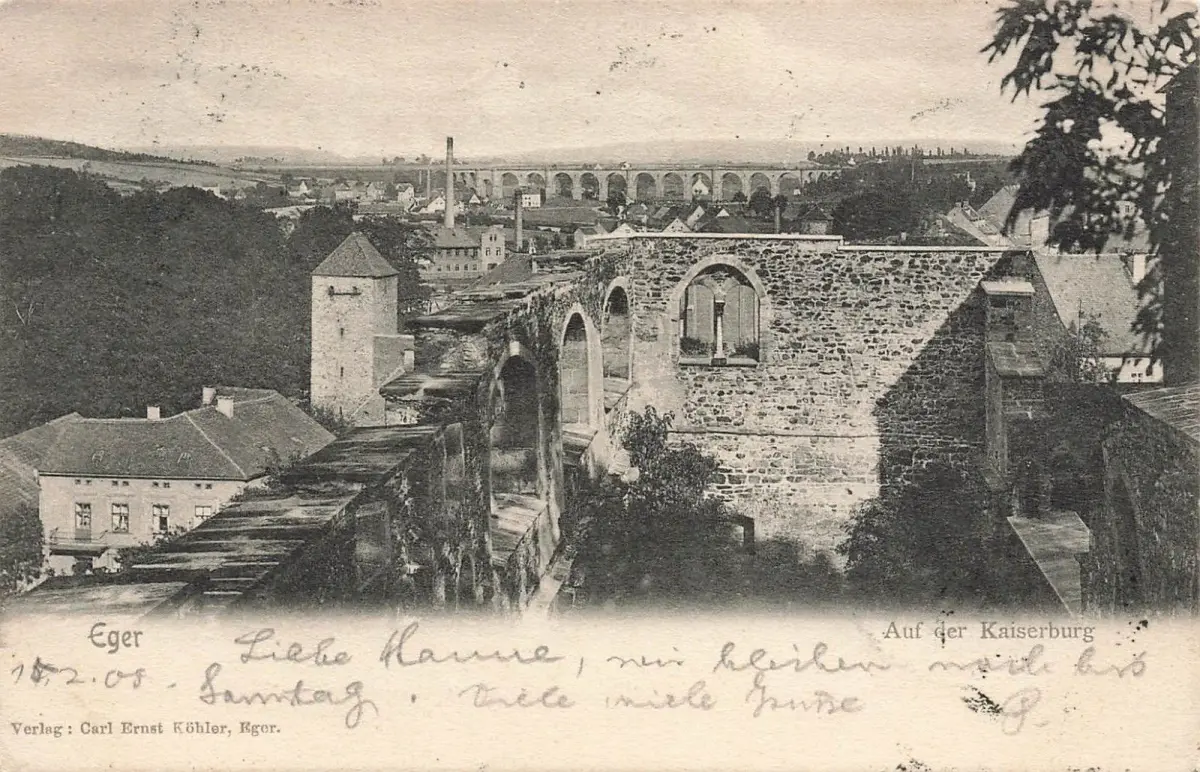 Eger
Auf der Kaiserburg
Liebe Hanne, wir bleiben noch bis
Samstag. Viele viele Grüße
Verlag: Carl Ernst Köhler, Eger.